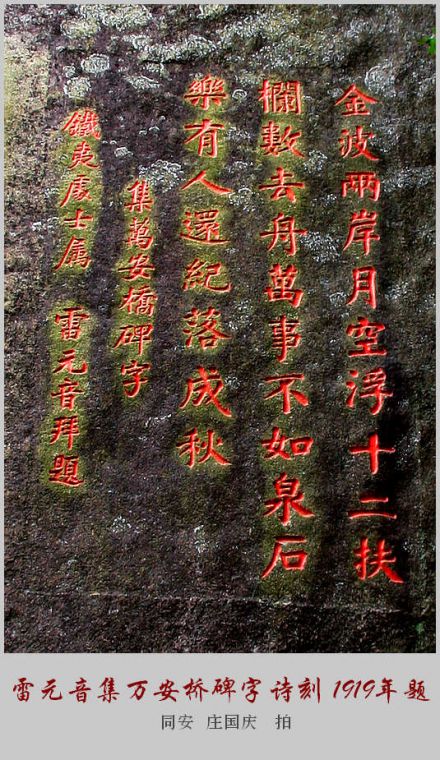 金波兩岸月空浮十二扶
欄數去舟萬事不如泉石
樂有人還紀落成秋
集萬安橋碑字
鐵夷處士属　雷元音拜題
雷元音集万安桥碑字诗刻 1919年题
同安 庄国庆 拍